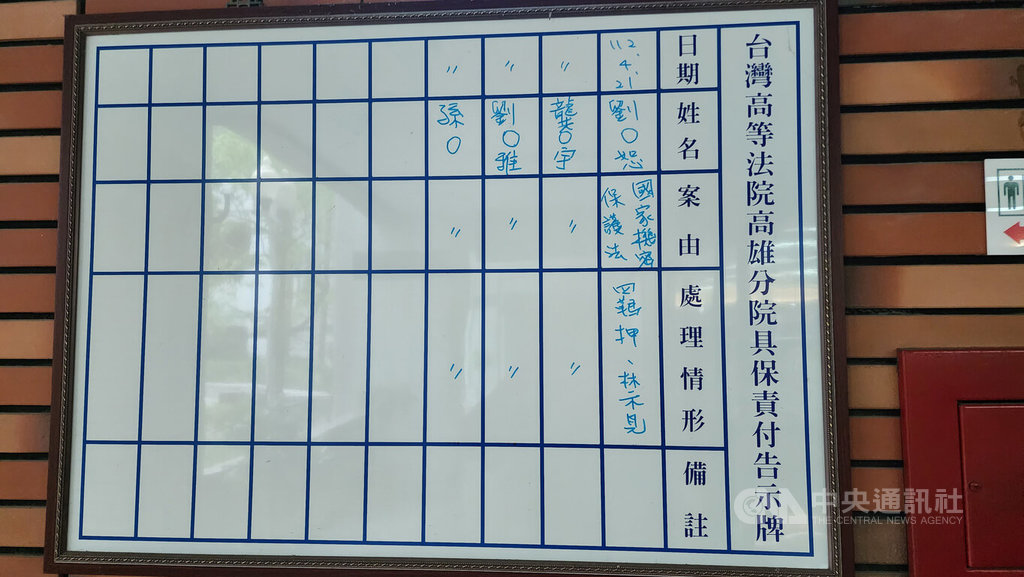 台灣高等法院高雄分院具保責付告示牌
日期
姓名
案由
處理情形
備註
112.4.21
劉○恕
國家機密
保護法
四羈押、禁見
〃
龔○宇
〃
〃
〃
劉○雅
〃
〃
〃
孫○
〃
〃
中央通訊社
THE CENTRAL NEWS AGENCY